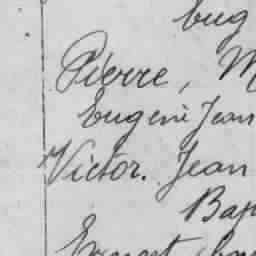 Eug
Pierre, M
Eugène Jean
Victor. Jean
Bap
Ernest